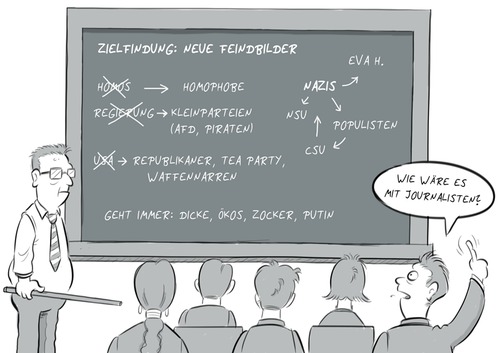 ZIELFINDUNG: NEUE FEINDBILDER
HOMOS → HOMOPHOBE
REGIERUNG → KLEINPARTEIEN
(AFD, PIRATEN)
USA → REPUBLIKANER, TEA PARTY,
WAFFENNARREN
GEHT IMMER: DICKE, ÖKOS, ZOCKER, PUTIN
EVA H.
NAZIS
NSU
POPULISTEN
CSU
WIE WÄRE ES
MIT JOURNALISTEN?